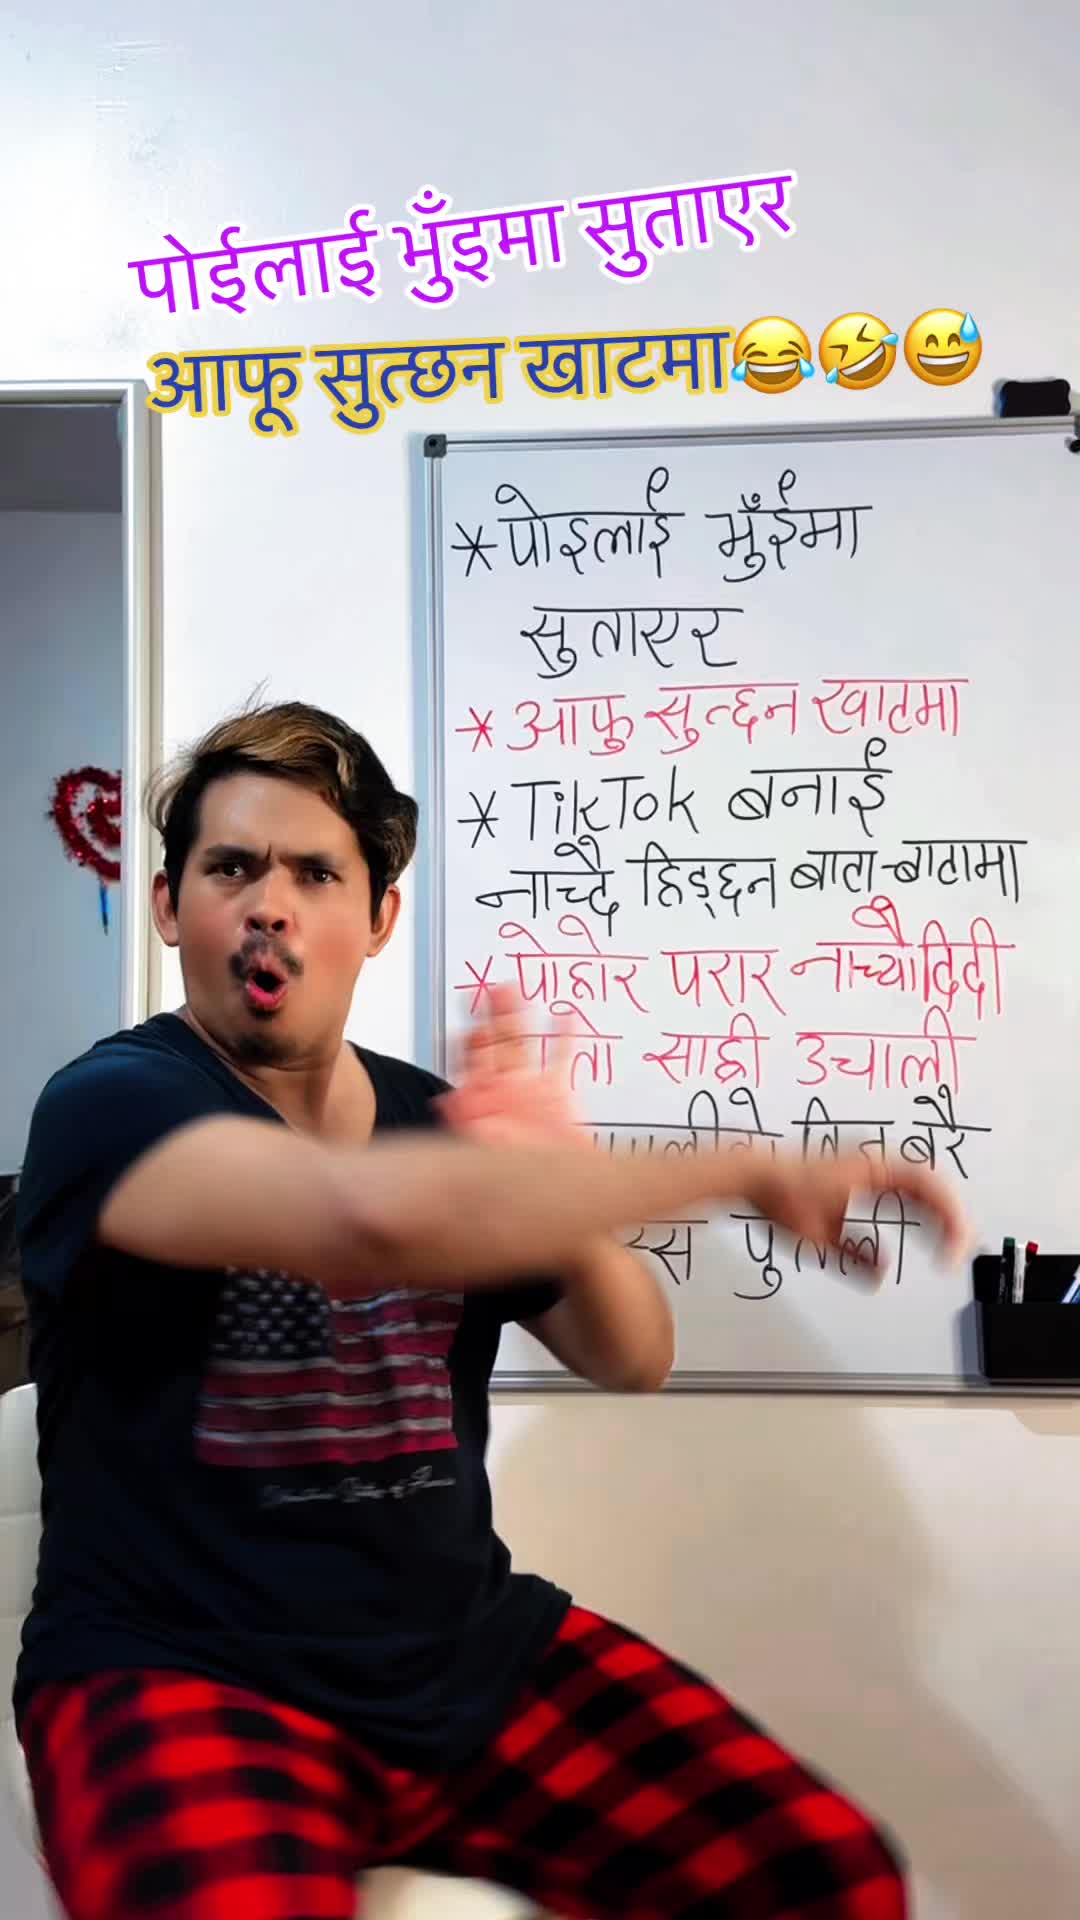 पोईलाई भुँइमा सुताएर
आफू सुत्छन खाटमा😂🤣😅
*पोइलाई भुँईमा
सुताएर
*आफु सुत्छन खाटमा
*TikTok बनाई
नाच्दै हिड्छन बाटा-बाटामा
*पोहोर परार नाच्यौ दिदी
सारी उचाली
बेरै
पुतली